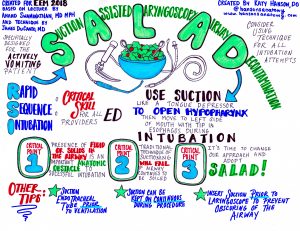 CREATED FOR EEM 2018
BASED ON LECTURE BY
ARUND SWAMINATHAN, MD MPH
AND TECHNIQUE BY
JAMES DUCANTO, MD
CREATED BY KATY HANSON, DO
SUCTION ASSISTED LARYNGOSCOPY AIRWAY DECONTAMINATION
SPECIFICALLY
DESIGNED
FOR THE
ACTIVELY
VOMITING
PATIENT
CONSIDER
USING
TECHNIQUE
FOR ALL
INTUBATION
ATTEMPTS
RAPID
SEQUENCE
INTUBATION
CRITICAL
SKILL
FOR ALL ED
PROVIDERS
USE SUCTION
LIKE A TONGUE DEPRESSOR
TO OPEN HYPOPHARYNX
THEN MOVE TO LEFT SIDE
OF MOUTH WITH TIP IN
ESOPHAGUS DURING
INTUBATION
CRITICAL
POINT
1
PRESENCE OF FLUID
OR SOLIDS IN
THE AIRWAY IS AN
ANATOMIC
OBSTACLE TO
SUCCESSFUL INTUBATION
CRITICAL
POINT
2
TRADITIONAL
TECHNIQUE OF
SUCTIONING
WILL FAIL
CONTINUED
TO BE SOILED
CRITICAL
POINT
3
IT'S TIME TO CHANGE
OUR APPROACH AND
SALAD!
OTHER
TIPS
SUCTION
ENDOTRACHEAL
TUBE PRIOR
TO VENTILATION
SUCTION CAN BE
KEPT ON CONTINUOUS
DURING PROCEDURE
INSERT SUCTION PRIOR TO
LARYNGOSCOPE TO PREVENT
OBSCURING OF THE
AIRWAY